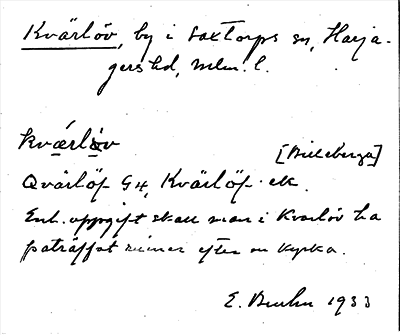 Kvärlöv, by i Saxtorps sn, Harja-
gers hd, Mlm. l.
kvä́rlöv
[Billeberga]
Qvärlöf GH, Kvärlöf ek.
Enl. uppgift skall man i Kvärlöv ha
påträffat ruiner efter en kyrka.
E. Bruhn 1933